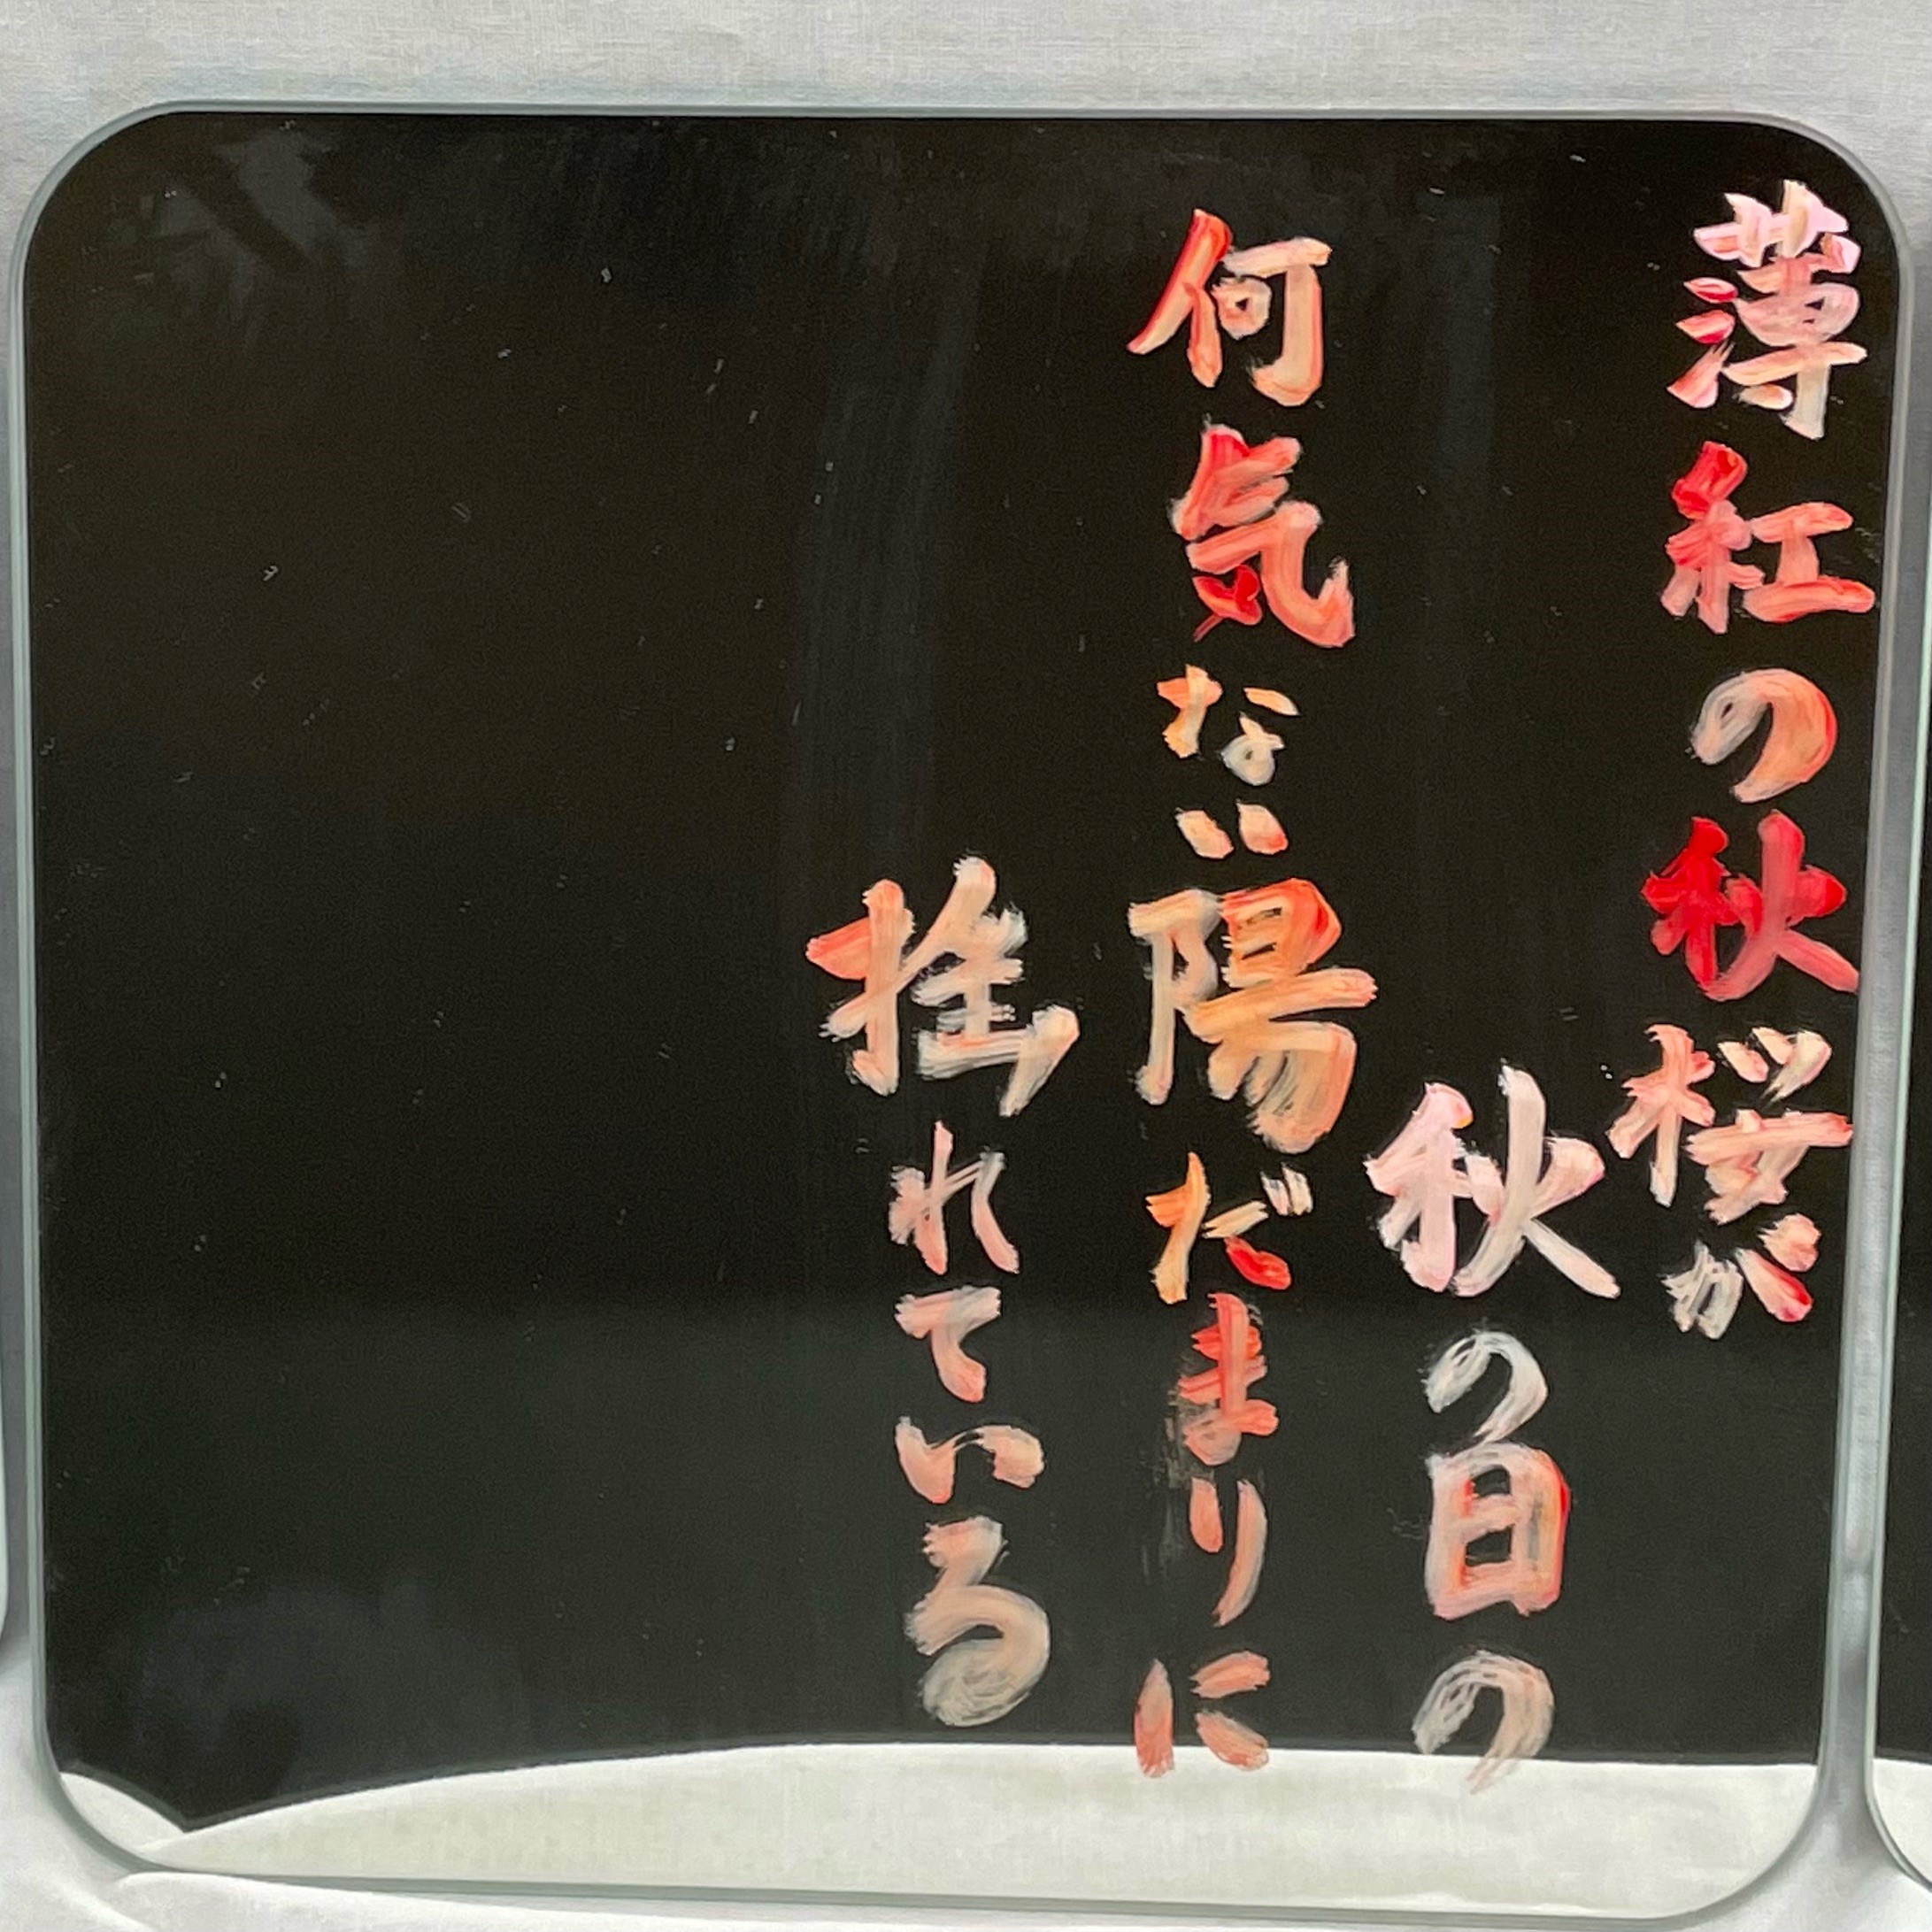 薄紅の秋桜が
秋の日の
何気ない陽だまりに
揺れている